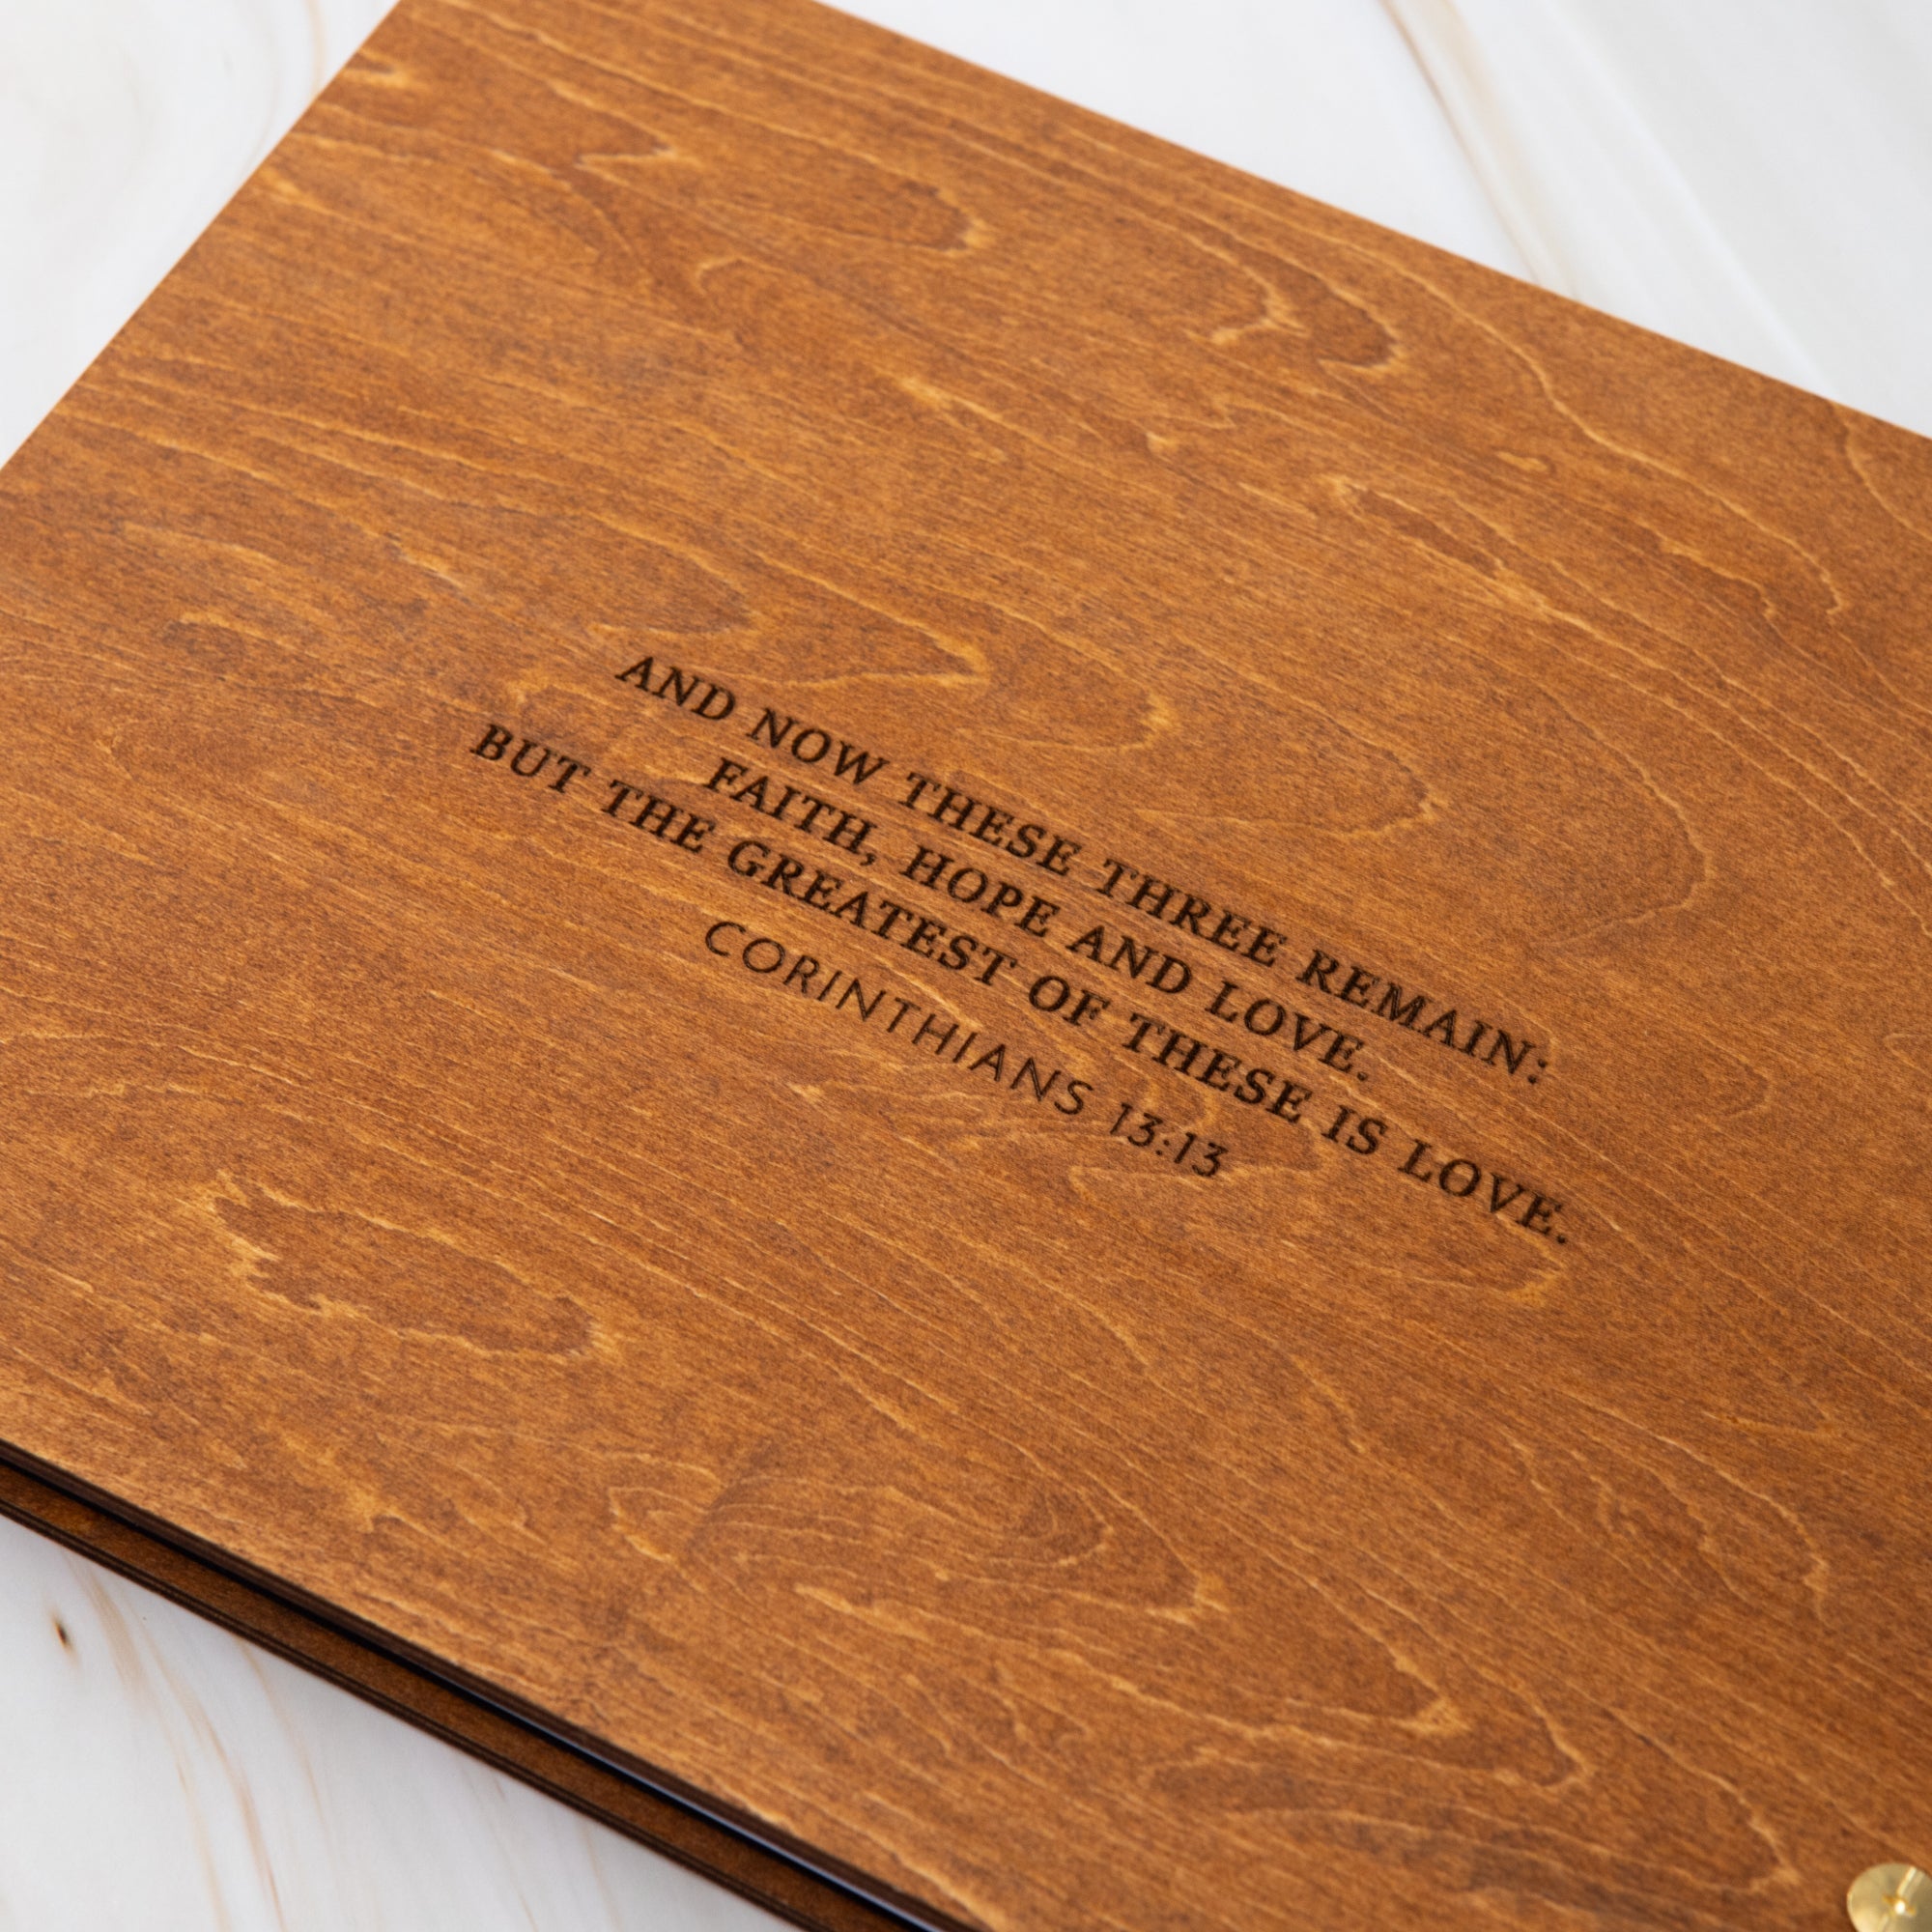 AND NOW THESE THREE REMAIN:
FAITH, HOPE AND LOVE.
BUT THE GREATEST OF THESE IS LOVE.
CORINTHIANS 13:13